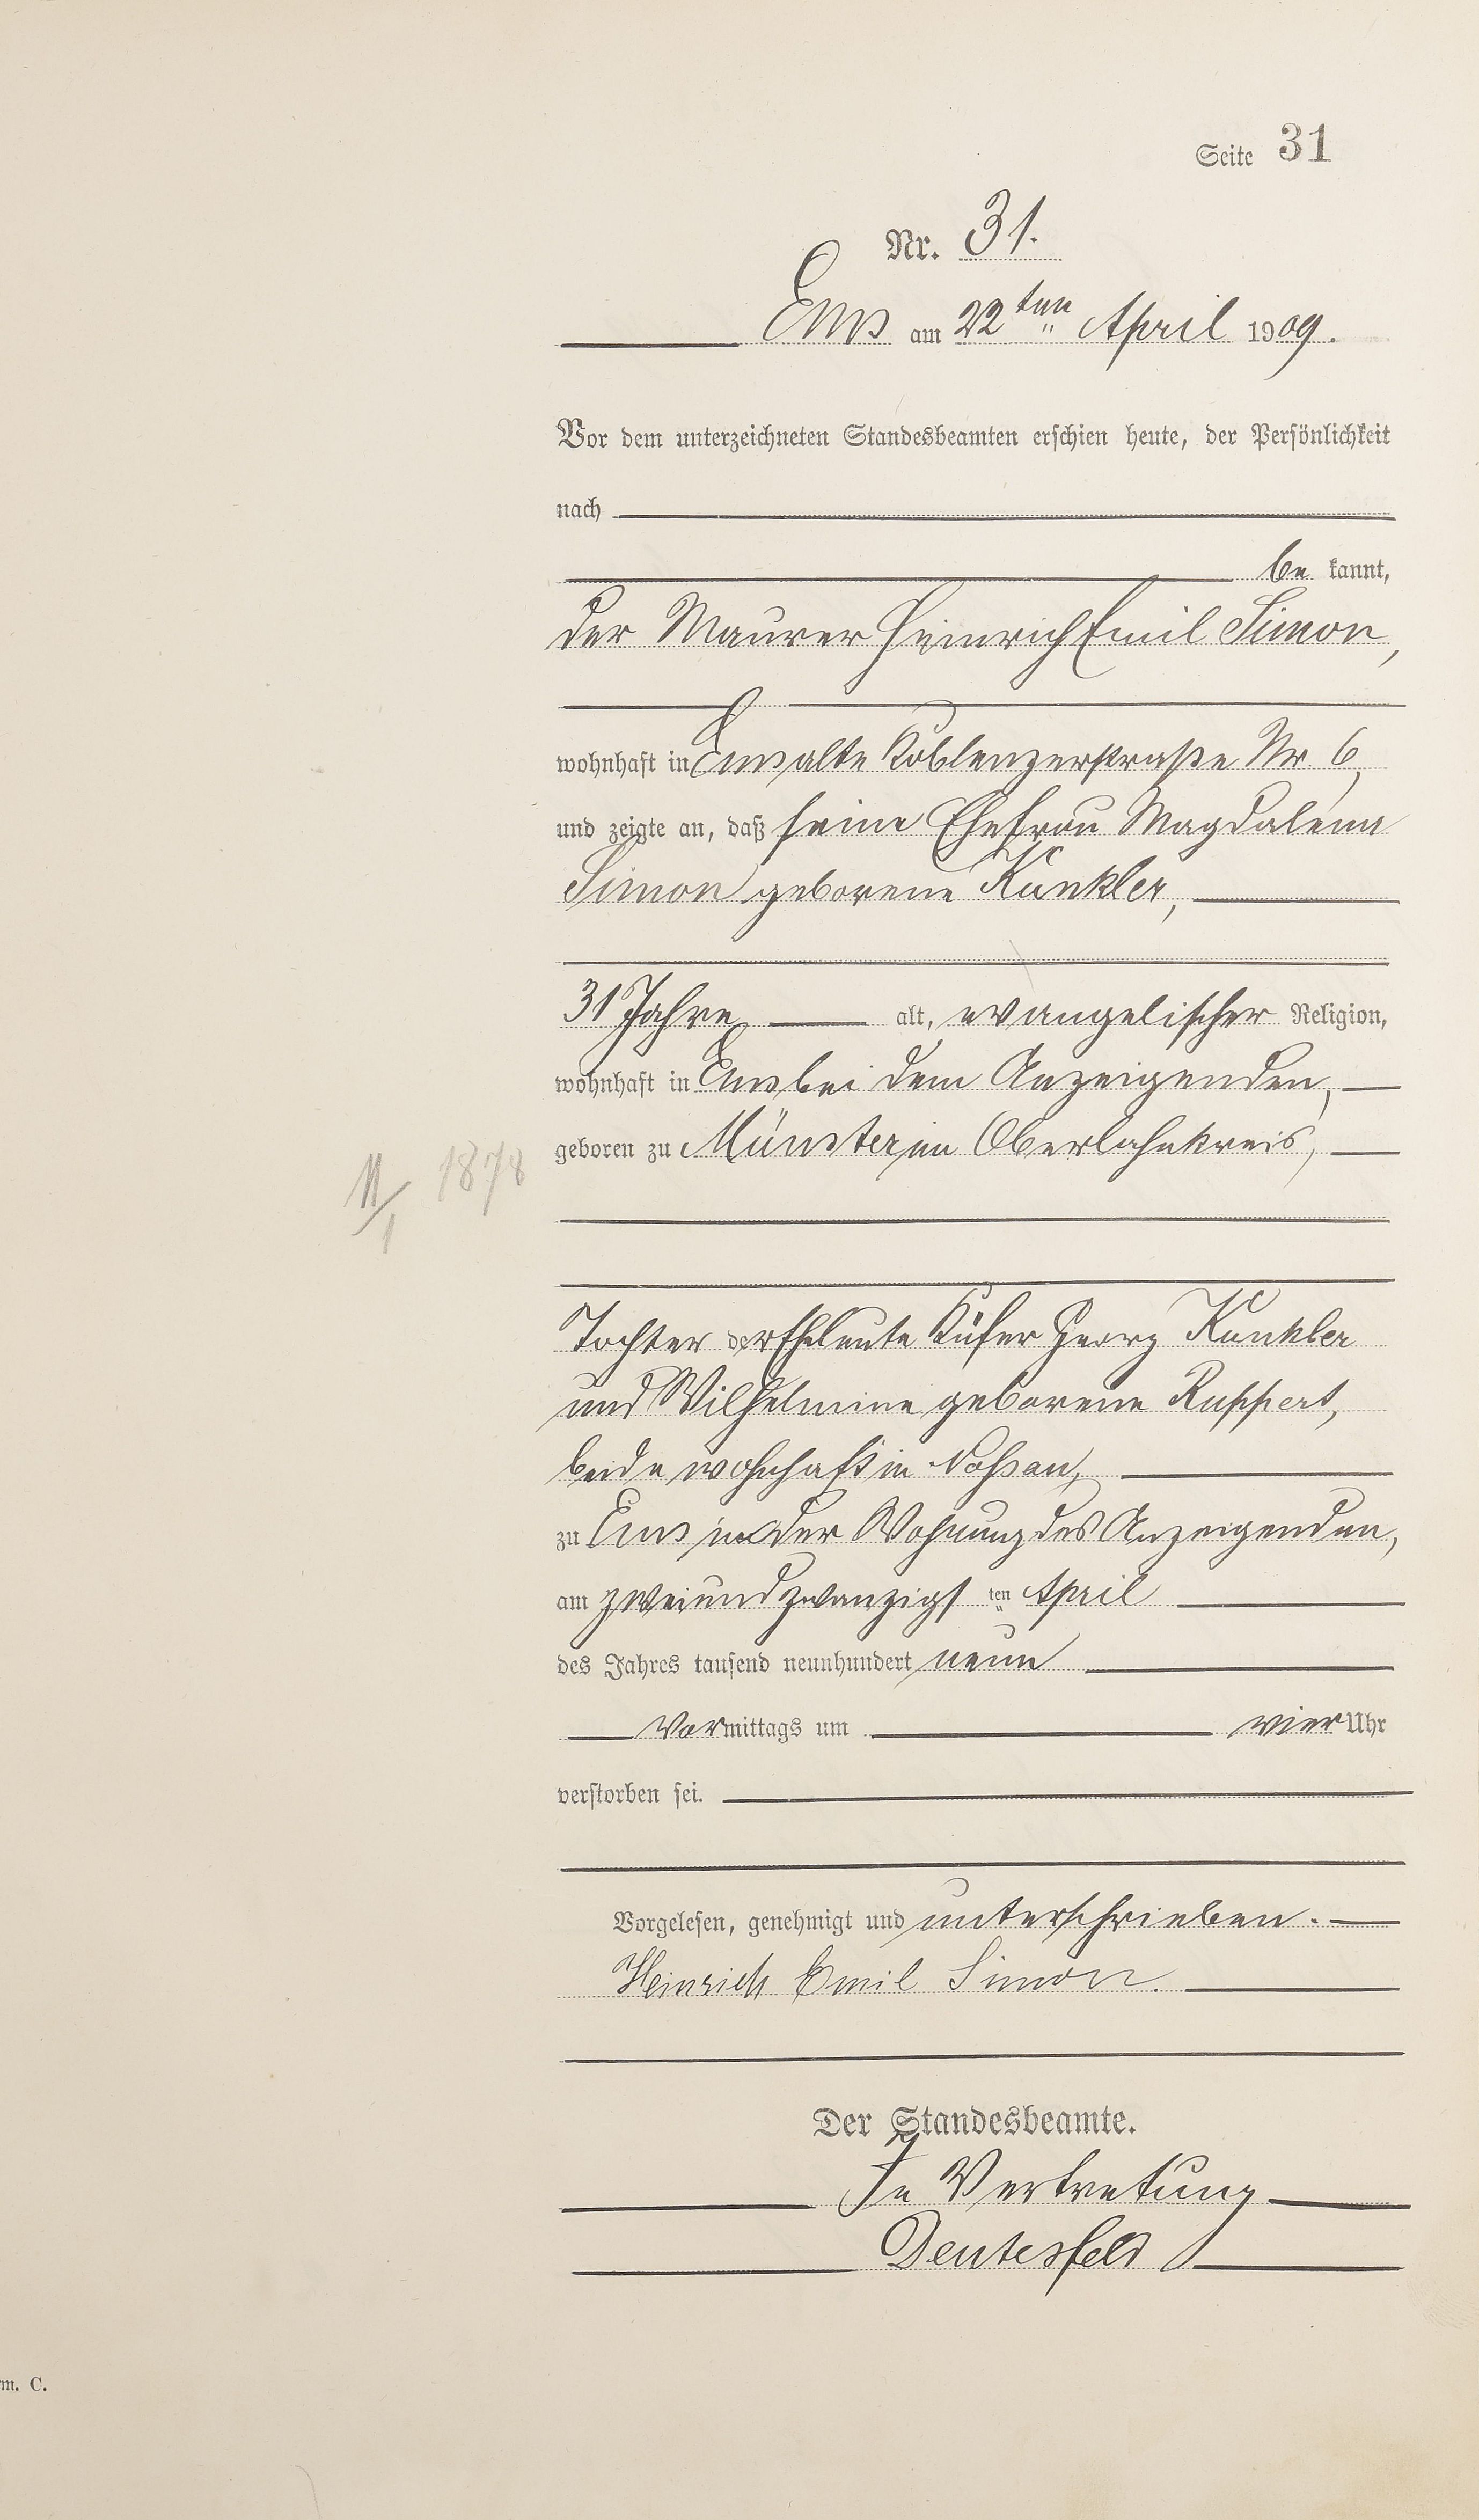 Seite 31
Nr. 31.
Ems am 22ten April 1909.
Vor dem unterzeichneten Standesbeamten erschien heute, der Persönlichkeit
nach
be kannt,
der Maurer Heinrich Emil Simon,
wohnhaft in Ems alte Koblenzerstraße Nr. 6,
und zeigte an, daß seine Ehefrau Magdalena
Simon geborene Kunkler,
31 Jahre alt, evangelischer Religion,
wohnhaft in Ems bei dem Anzeigenden,
geboren zu Münster im Oberlahnkreis,
11/1 1878
Tochter der Eheleute Küfer Georg Kunkler
und Wilhelmine geborene Ruppert,
beide wohnhaft in Nassau,
zu Ems in der Wohnung des Anzeigenden,
am zweiundzwanzigsten April
des Jahres tausend neunhundert neun
Vormittags um vier Uhr
verstorben sei.
Vorgelesen, genehmigt und unterschrieben.
Heinrich Emil Simon.
Der Standesbeamte.
In Vertretung
Deutesfeld
m. C.